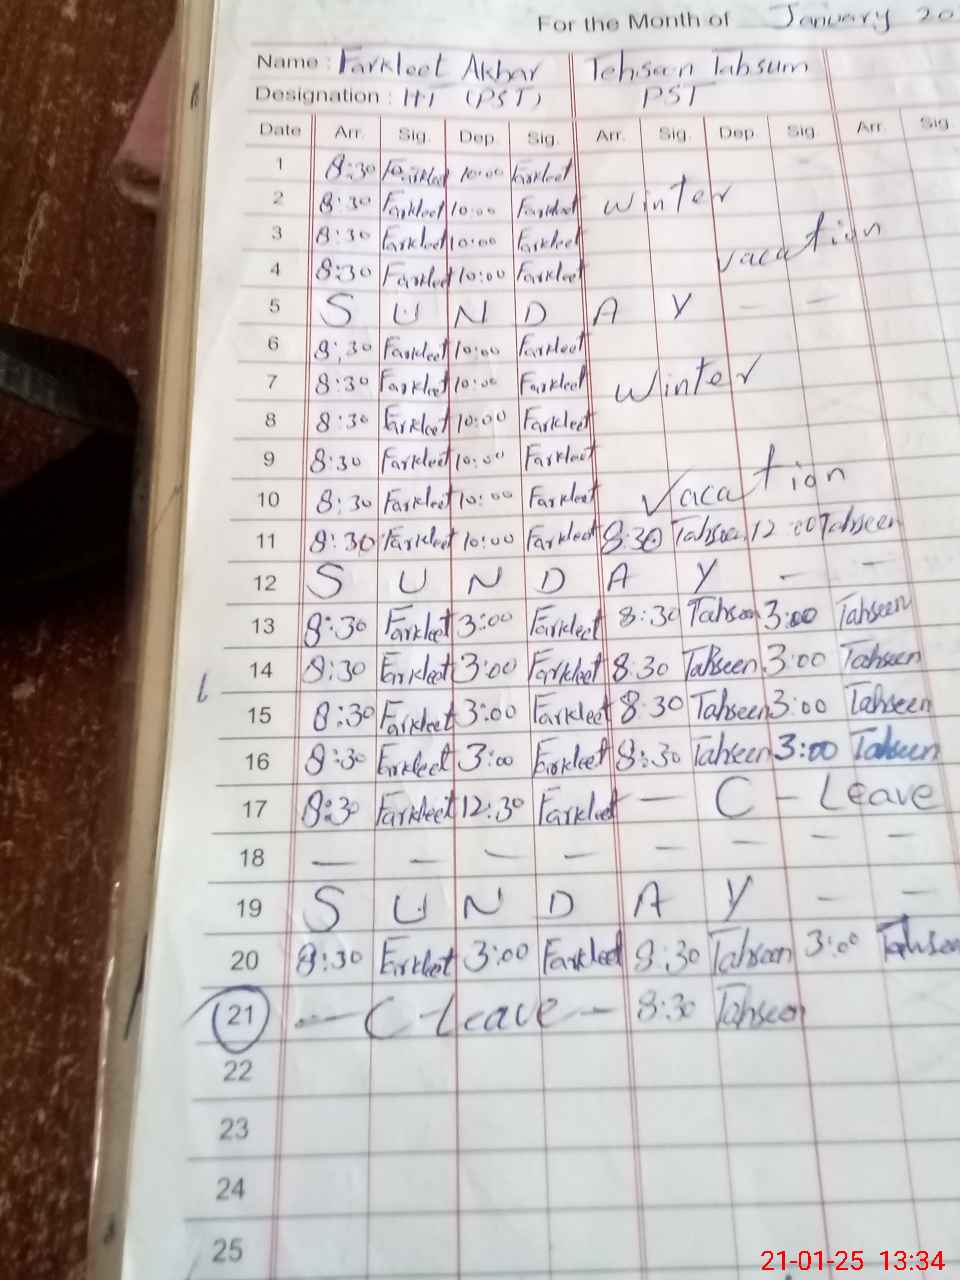 For the Month of January 20
Name : Farkleet Akbar Tehseen Tabsum
Designation : HT (PST) PST
Date Arr. Sig. Dep. Sig. Arr. Sig. Dep. Sig. Arr. Sig
1 8:30 Farkleet 10:00 Farkleet
2 8:30 Farkleet 10:00 Farkleet winter
3 8:30 Farkleet 10:00 Farkleet vacation
4 8:30 Farkleet 10:00 Farkleet
5 S U N D A Y - -
6 8:30 Farkleet 10:00 Farkleet
7 8:30 Farkleet 10:00 Farkleet winter
8 8:30 Farkleet 10:00 Farkleet
9 8:30 Farkleet 10:00 Farkleet
10 8:30 Farkleet 10:00 Farkleet Vacation
11 8:30 Farkleet 10:00 Farkleet 8:30 Tahseen 12:00 Tahseen
12 S U N D A Y - -
13 8:30 Farkleet 3:00 Farkleet 8:30 Tahseen 3:00 Tahseen
14 8:30 Farkleet 3:00 Farkleet 8:30 Tahseen 3:00 Tahseen
15 8:30 Farkleet 3:00 Farkleet 8:30 Tahseen 3:00 Tahseen
16 8:30 Farkleet 3:00 Farkleet 8:30 Tahseen 3:00 Tahseen
17 8:30 Farkleet 12:30 Farkleet - C - Leave
18 - - - - - - - -
19 S U N D A Y - -
20 8:30 Farkleet 3:00 Farkleet 8:30 Tahseen 3:00 Tahseen
21 - C-Leave - 8:30 Tahseen
22
23
24
25
21-01-25 13:34